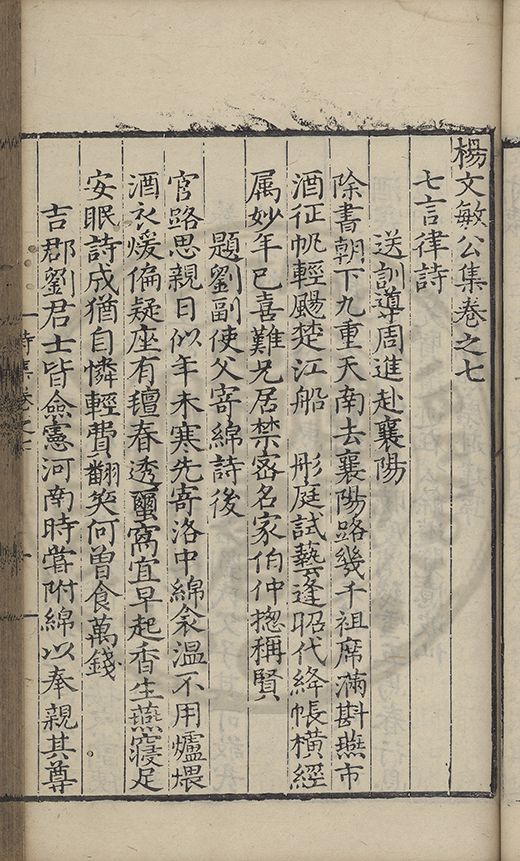 楊文敏公集卷之七
七言律詩
送訓導周進赴襄陽
除書朝下九重天南去襄陽路幾千祖席滿斟燕市
酒征帆輕颺楚江船　彤庭試藝逢昭代絳帳橫經
属妙年已喜難兄居禁密名家伯仲揔稱賢
題劉副使父寄綿詩後
官路思親日似年未寒先寄洛中綿衾溫不用爐煨
酒衣煖偏疑座有氊春透蜜窩宜早起香生燕寢足
安眠詩成猶自憐輕費翻笑何曾食萬錢
吉郡劉君士皆僉憲河南時嘗附綿以奉親其尊
詩集卷之七
一